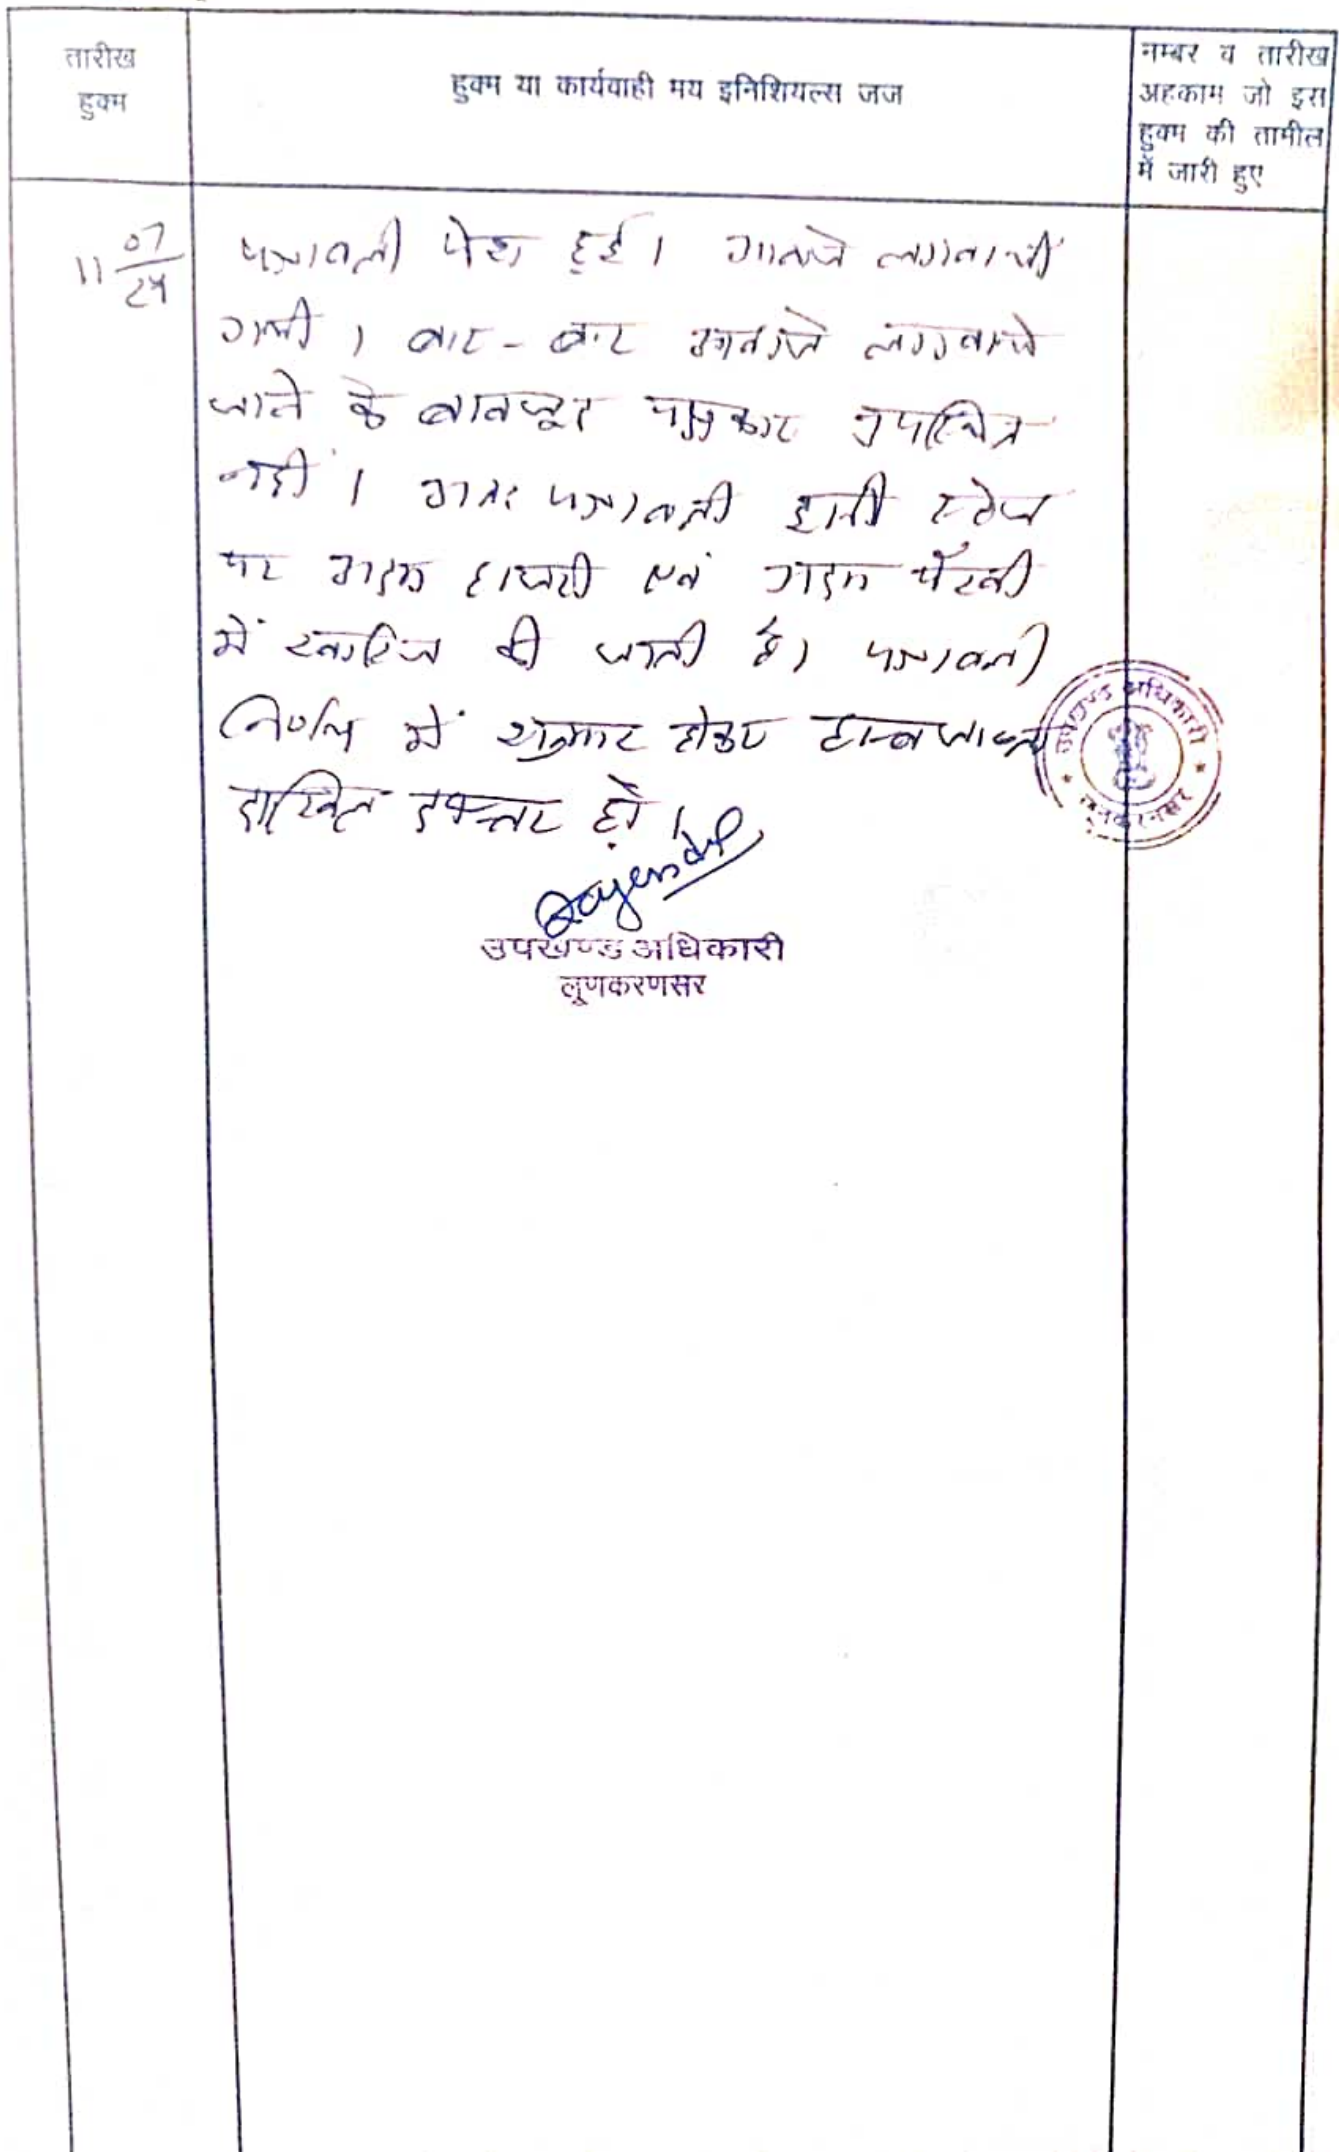 तारीख
हुक्म
हुक्म या कार्यवाही मय इनिशियल्स जज
नम्बर व तारीख
अहकाम जो इस
हुक्म की तामील
में जारी हुए
11 07/24
पत्रावली पेश हुई। आवाजे लगवायी
गयी। बार-बार आवाजे लगवाये
जाने के बावजूद पक्षकार उपस्थित
नहीं। अतः पत्रावली इसी स्टेज
पर अदम हाजरी एवं अदम पैरवी
में खारिज की जाती है। पत्रावली
निर्णय में शुमार होकर
दाखिल दफ्तर हो।
उपखण्ड अधिकारी
लूणकरणसर
उपखण्ड अधिकारी
लूनकरनसर